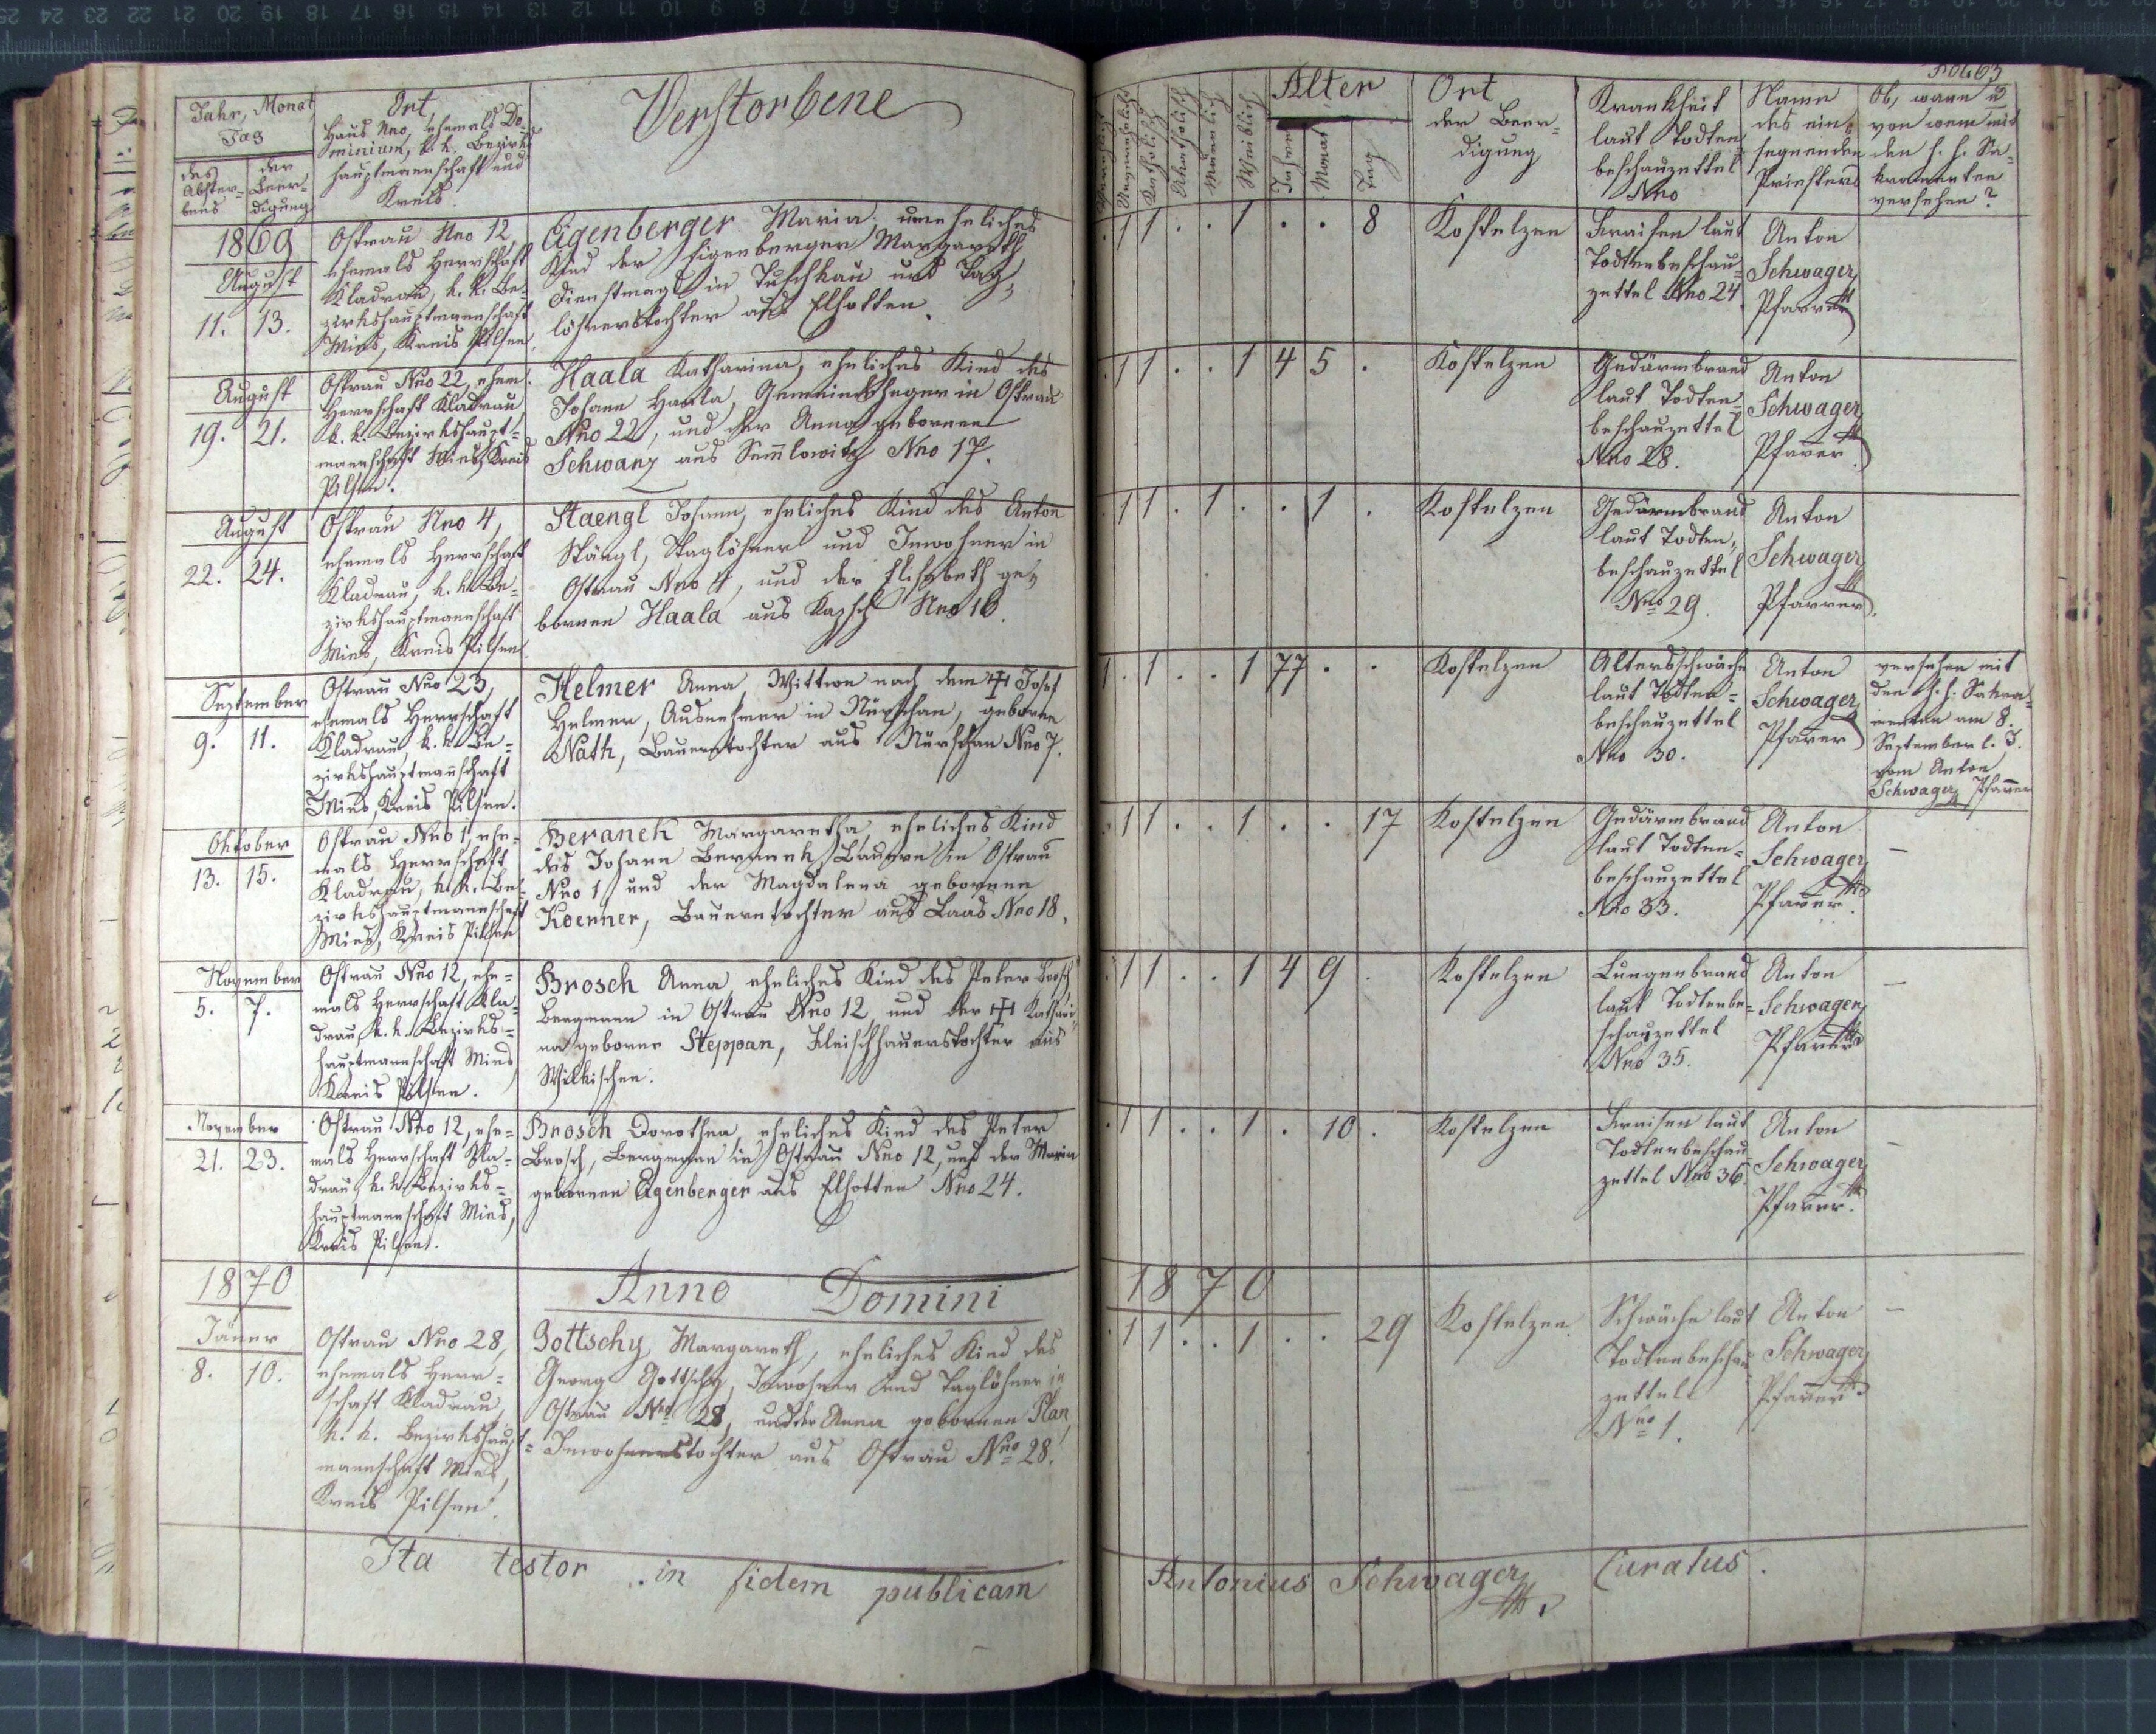 Fol 63
Jahr, Monat
Tag
des
Abster-
bens
der
Beer-
digung
Ort,
Haus Nro, ehemals Do-
minium, k. k. Bezirks
hauptmannschaft und
Kreis.
Verstorbene
Unverehelicht
Katholisch
Akatholisch
Männlich
Weiblich
Alter
Jahre
Monat
Tag
Ort
der Beer-
digung
Krankheit
laut Todten
beschauzettel
Nro
Name
des ein-
segnenden
Priesters
Ob, wann u
von wem mit
den h. h. Sa-
kramenten
versehen?
1869
August
11. 13.
Ostrau Nro 12
ehemals Herrschaft
Kladrau, k. k. Be-
zirkshauptmannschaft
Mies, Kreis Pilsen.
Eigenberger Maria, uneheliches
Kind der Eigenberger Margareth
Dienstmagd in Tuschkau und Tag-
löhnerstochter aus Elhotten.
. 1 1 . . 1 . . 8
Kostelzen
Fraisen laut
Todtenbeschau-
zettel Nro 24
Anton
Schwager
Pfarrer
August
19. 21.
Ostrau Nro 22, ehem.
Herrschaft Kladrau
k. k. Bezirkshaupt-
mannschaft Mies, Kreis
Pilsen.
Haala Katharina, eheliches Kind des
Johann Haala, Gemeindheger in Ostrau
Nro 22, und der Anna gebornen
Schwanz aus Sem̅lowitz Nro 17.
. 1 1 . . 1 4 5 .
Kostelzen
Gedärmbrand
laut Todten-
beschauzettel
Nro 28.
Anton
Schwager
Pfar̅er
August
22. 24.
Ostrau Nro 4,
ehemals Herrschaft
Kladrau, k. k. Be-
zirkshauptmannschaft
Mies, Kreis Pilsen
Staengl Johann, eheliches Kind des Anton
Stängl, Taglöhner und Inwohner in
Ostrau Nro 4, und der Elisabeth ge-
bornen Haala aus Kapsch Nro 16.
. 1 1 . 1 . . 1 .
Kostelzen
Gedärmbrand
laut Todten-
beschauzettel
Nro 29.
Anton
Schwager
Pfarrer.
September
9. 11.
Ostrau Nro 23,
ehemals Herrschaft
Kladrau, k. k. Be-
zirkshauptman̅schaft
Mies, Kreis Pilsen.
Helmer Anna, Wittwe nach dem ✝ Josef
Helmer, Ausnehmer in Nürschan, geborne
Nath, Bauerstochter aus Nürschan Nro 7.
1 . 1 . . 1 77 . .
Kostelzen
Altersschwäche
laut Todten-
beschauzettel
Nro 30.
Anton
Schwager
Pfar̅er
versehen mit
den h. h. Sakra-
menten am 8.
September l. J.
vom Anton
Schwager Pfar̅er
Oktober
13. 15.
Ostrau Nro 1, ehe-
mals Herrschaft
Kladrau, k. k. Be-
zirkshauptmannschaft
Mies, Kreis Pilsen
Beranek Margaretha, eheliches Kind
des Johann Beranek, Bauern in Ostrau
Nro 1, und der Magdalena gebornen
Koenner, Bauerntochter aus Laas Nro 18.
. 1 1 . . 1 . . 17
Kostelzen
Gedärmbrand
laut Todten-
beschauzettel
Nro 33.
Anton
Schwager
Pfar̅er.
–
November
5. 7.
Ostrau Nro 12, ehe-
mals Herrschaft Kla-
drau, k. k. Bezirks-
hauptmannschaft Mies
Kreis Pilsen.
Brosch Anna, eheliches Kind des Peter Brosch
Bergmann in Ostrau Nro 12, und der ✝ Kathari-
na geborne Steppan, Fleischhauerstochter aus
Wilkischen.
. 1 1 . . 1 4 9 .
Kostelzen
Lungenbrand
laut Todtenbe-
schauzettel
Nro 35.
Anton
Schwager
Pfarrer
–
November
21. 23.
Ostrau Nro 12, ehe-
mals Herrschaft Kla-
drau, k. k. Bezirks-
hauptmannschaft Mies,
Kreis Pilsen.
Brosch Dorothea, eheliches Kind des Peter
Brosch, Bergmann in Ostrau Nro 12, und der Maria
gebornen Eigenberger aus Elhotten Nro 24.
. 1 1 . . 1 . 10 .
Kostelzen
Fraisen laut
Todtenbeschau-
zettel Nro 36.
Anton
Schwager
Pfar̅er.
–
1870
Anno Domini
1870
Jäner
8. 10.
Ostrau Nro 28,
ehemals Herr-
schaft Kladrau,
k. k. Bezirkshaupt-
mannschaft Mies,
Kreis Pilsen.
Gottschy Margareth, eheliches Kind des
Georg Gottschy, Inwohner und Taglöhner in
Ostrau Nro 28, und der Anna gebornen Plan,
Inwohnerstochter aus Ostrau Nro 28.
. 1 1 . . 1 . . 29
Kostelzen.
Schwäche laut
Todtenbeschau-
zettel
Nro 1.
Anton
Schwager
Pfar̅er
–
Ita testor in fidem publicam
Antonius Schwager Curatus.